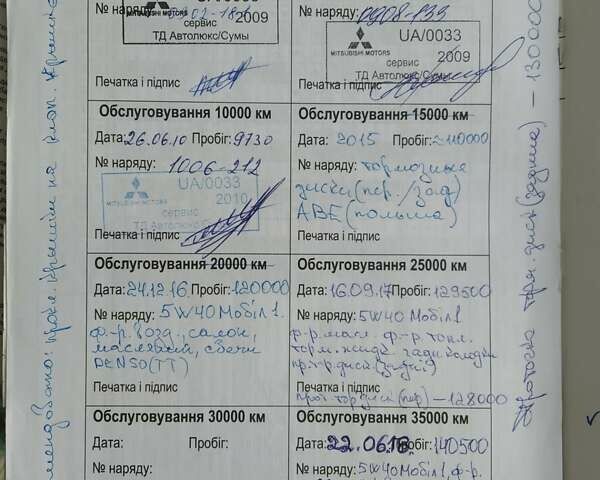 № наряду:
2009
MITSUBISHI MOTORS
сервис
ТД Автолюкс/Сумы
Печатка і підпис
№ наряду: 0908-133
UA/0033
MITSUBISHI MOTORS
2009
сервис
ТД Автолюкс/Сумы
Печатка і підпис
Обслуговування 10000 км
Дата: 26.06.10 Пробіг: 9730
№ наряду: 1006-212
UA/0033
MITSUBISHI MOTORS
2010
сервис
ТД Автолюкс/Сумы
Печатка і підпис
Обслуговування 15000 км
Дата: 2015 Пробіг: 110000
№ наряду: тормозные
диски (пер./зад)
ABE (польша)
Печатка і підпис
Обслуговування 20000 км
Дата: 24.12.16 Пробіг: 120000
№ наряду: 5W40 Мобіл 1.
ф-р. возд., салон,
масляный, свечи
DENSO (TT)
Печатка і підпис
Обслуговування 25000 км
Дата: 16.09.17 Пробіг: 129500
№ наряду: 5W40 Мобіл 1
ф-р. масл. ф-р. топл.
торм. жидк. зади колодки
Печатка і підпис
(пер) - 128000
Обслуговування 30000 км
Дата: Пробіг:
№ наряду:
Обслуговування 35000 км
22.06.18 Пробіг: 140500
№ наряду: 5W40 Мобіл 1, ф-р.
Проточка торм. диск (задние) - 130000